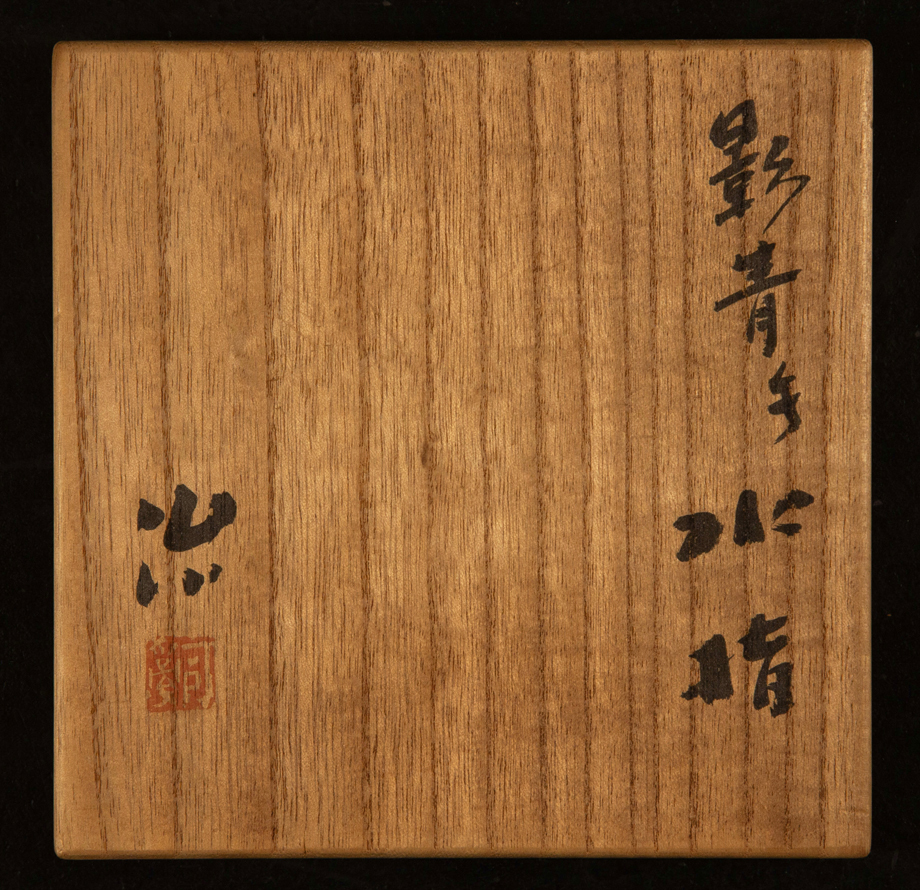 影青手
水指